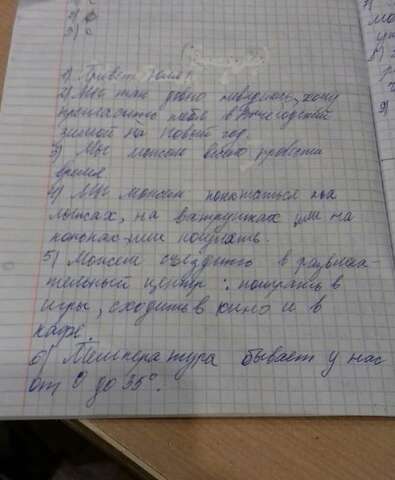 2) с
3) с
1) Привет Юля!
2) Мы так давно невиделись, хочу
пригласить тебя в Вычегодский
зимой на Новый год.
3) Мы можем весело провести
время
4) Мы можем покататься на
лыжах, на ватрушках или на
коньках или погулять.
5) Можем съездить в развлека
тельный центр: поиграть в
игры, сходить в кино и в
кафе.
6) Температура бывает у нас
от 0 до 35°.